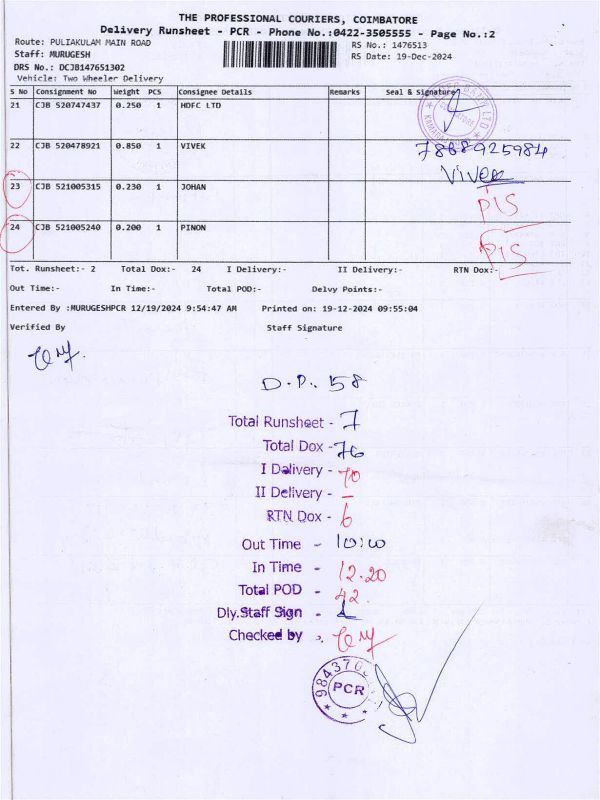 THE PROFESSIONAL COURIERS, COIMBATORE
Delivery Runsheet - PCR - Phone No.:0422-3505555 - Page No.:2
Route: PULIAKULAM MAIN ROAD RS No.: 1476513
Staff: MURUGESH RS Date: 19-Dec-2024
DRS No.: DCJB147651302
Vehicle: Two Wheeler Delivery
S No Consignment No Weight PCS Consignee Details Remarks Seal & Signature
21 CJB 520747437 0.250 1 HDFC LTD
22 CJB 520478921 0.850 1 VIVEK 7868925984
Vivek
23 CJB 521005315 0.230 1 JOHAN PIS
24 CJB 521005240 0.200 1 PINON PIS
Tot. Runsheet:- 2 Total Dox:- 24 I Delivery:- II Delivery:- RTN Dox:-
Out Time:- In Time:- Total POD:- Delvy Points:-
Entered By :MURUGESHPCR 12/19/2024 9:54:47 AM Printed on: 19-12-2024 09:55:04
Verified By Staff Signature
D.P. 58
Total Runsheet - 7
Total Dox - 76
I Dalivery - 70
II Delivery - –
RTN Dox - 6
Out Time - 10:10
In Time - 12.20
Total POD - 42
Dly.Staff Sign -
Checked by -
PCR